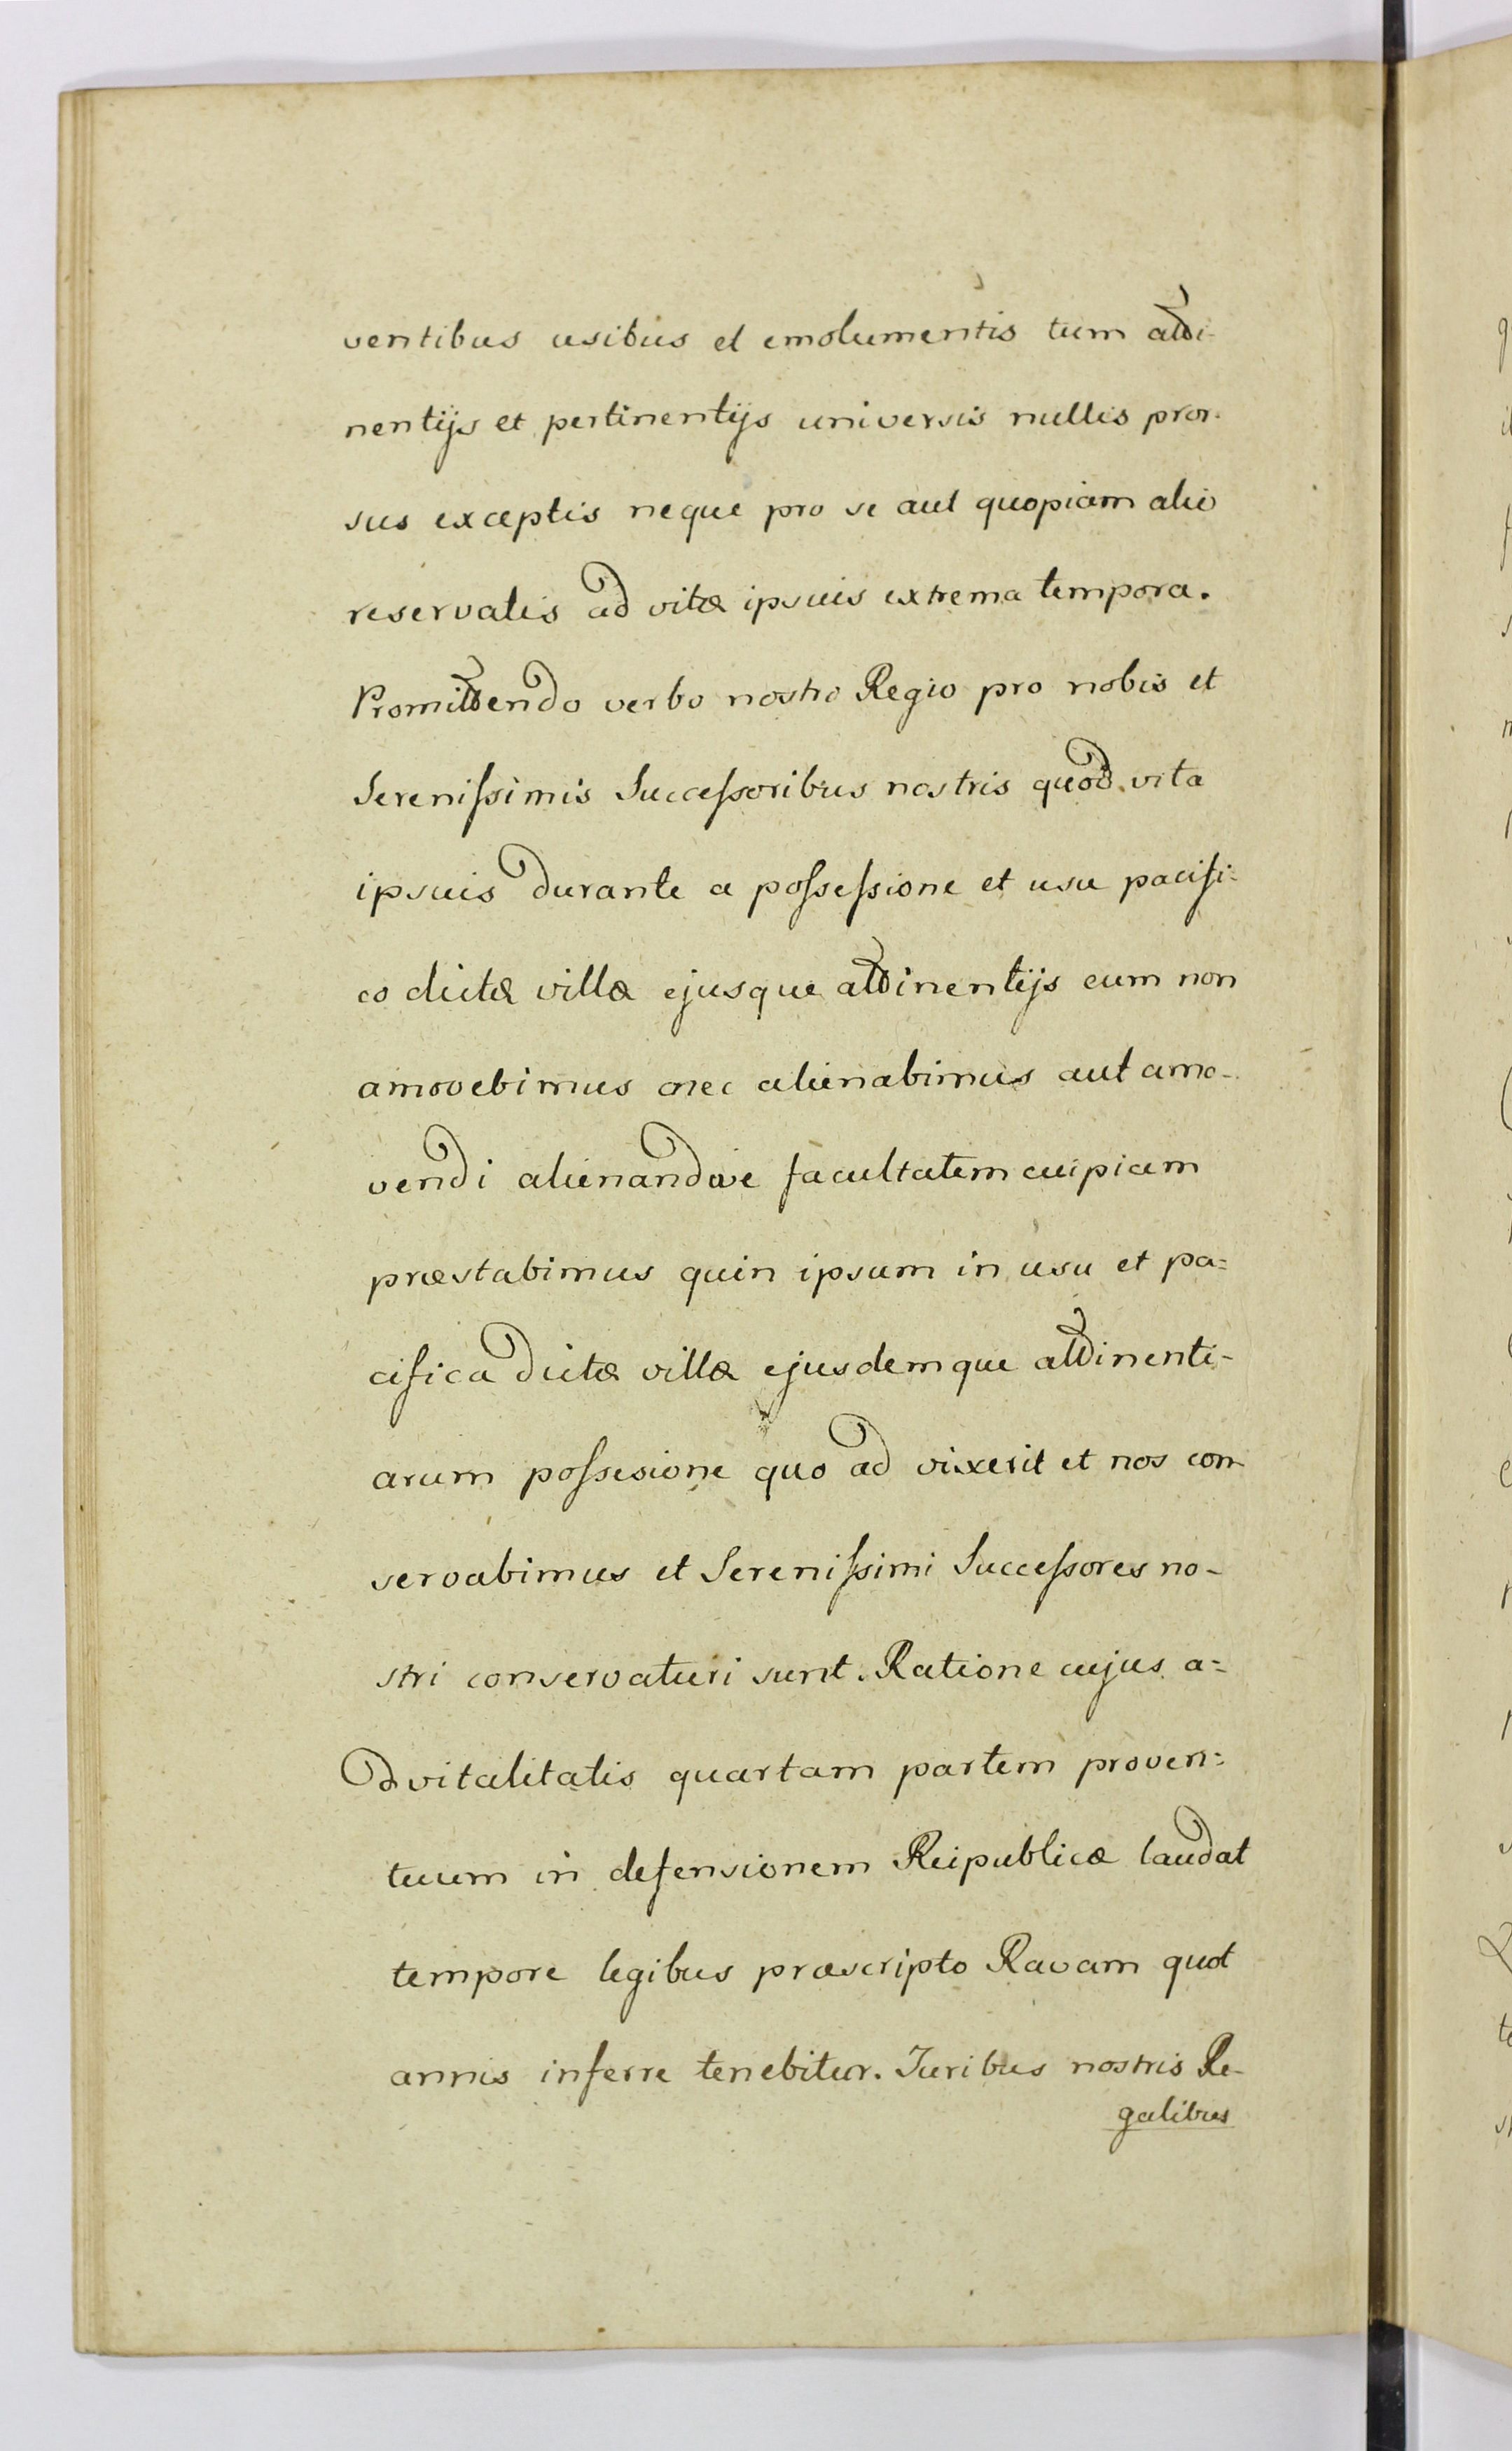 ventibus usibus et emolumentis tum atti-
nentijs et pertinentijs universis nullis pror-
sus exceptis neque pro se aut quopiam alio
reservatis ad vitæ ipsuis extrema tempora.
Promittendo verbo nostro Regio pro nobis et
Sereniſsimis Succeſsoribus nostris quod vita
ipsuis durante a poſseſsione et usu pacifi=
co dictæ villæ ejusque attinentijs eum non
amovebimus nec alienabimus aut amo-
vendi alienandive facultatem cuipiam
præstabimus quin ipsum in usu et pa=
cifica dictæ villæ ejusdemque attinenti-
arum poſsesione quo ad vixerit et nos con
servabimus et Sereniſsimi Succeſsores no-
stri conservaturi sunt. Ratione cujus a=
dvitalitatis quartam partem proven=
tuum in defensionem Reipublicæ laudat
tempore legibus præscripto Ravam quot
annis inferre tenebitur. Juribus nostris Re-
galibus